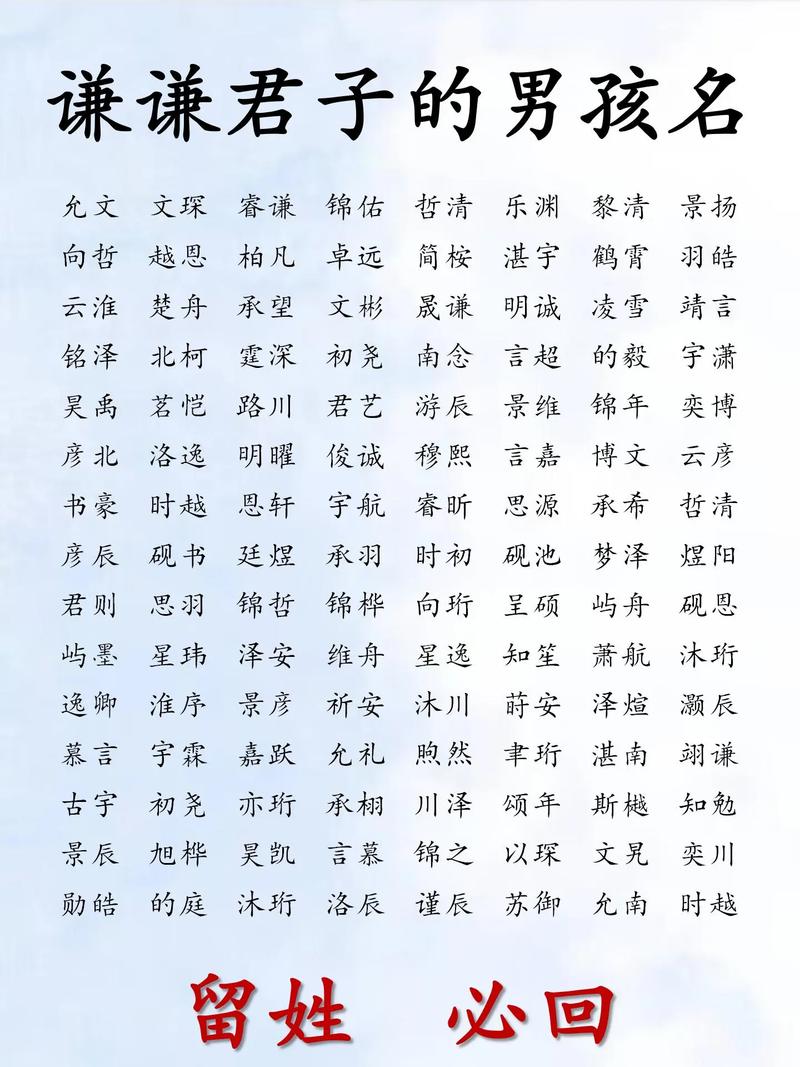 谦谦君子的男孩名
允文 文琛 睿谦 锦佑 哲清 乐渊 黎清 景扬
向哲 越恩 柏凡 卓远 简桉 湛宇 鹤霄 羽皓
云淮 楚舟 承望 文彬 晟谦 明诚 凌雪 靖言
铭泽 北柯 霆深 初尧 南念 言超 的毅 宇潇
昊禹 茗恺 路川 君艺 游辰 景维 锦年 奕博
彦北 洛逸 明曜 俊诚 穆熙 言嘉 博文 云彦
书豪 时越 恩轩 宇航 睿昕 思源 承希 哲清
彦辰 砚书 廷煜 承羽 时初 砚池 梦泽 煜阳
君则 思羽 锦哲 锦桦 向珩 呈硕 屿舟 砚恩
屿墨 星玮 泽安 维舟 星逸 知笙 萧航 沐珩
逸卿 淮序 景彦 祈安 沐川 莳安 泽煊 灏辰
慕言 宇霖 嘉跃 允礼 煦然 聿珩 湛南 翊谦
古宇 初尧 亦珩 承栩 川泽 颂年 斯樾 知勉
景辰 旭桦 昊凯 言慕 锦之 以琛 文晃 奕川
勋皓 的庭 沐珩 洛辰 谨辰 苏御 允南 时越
留姓 必回